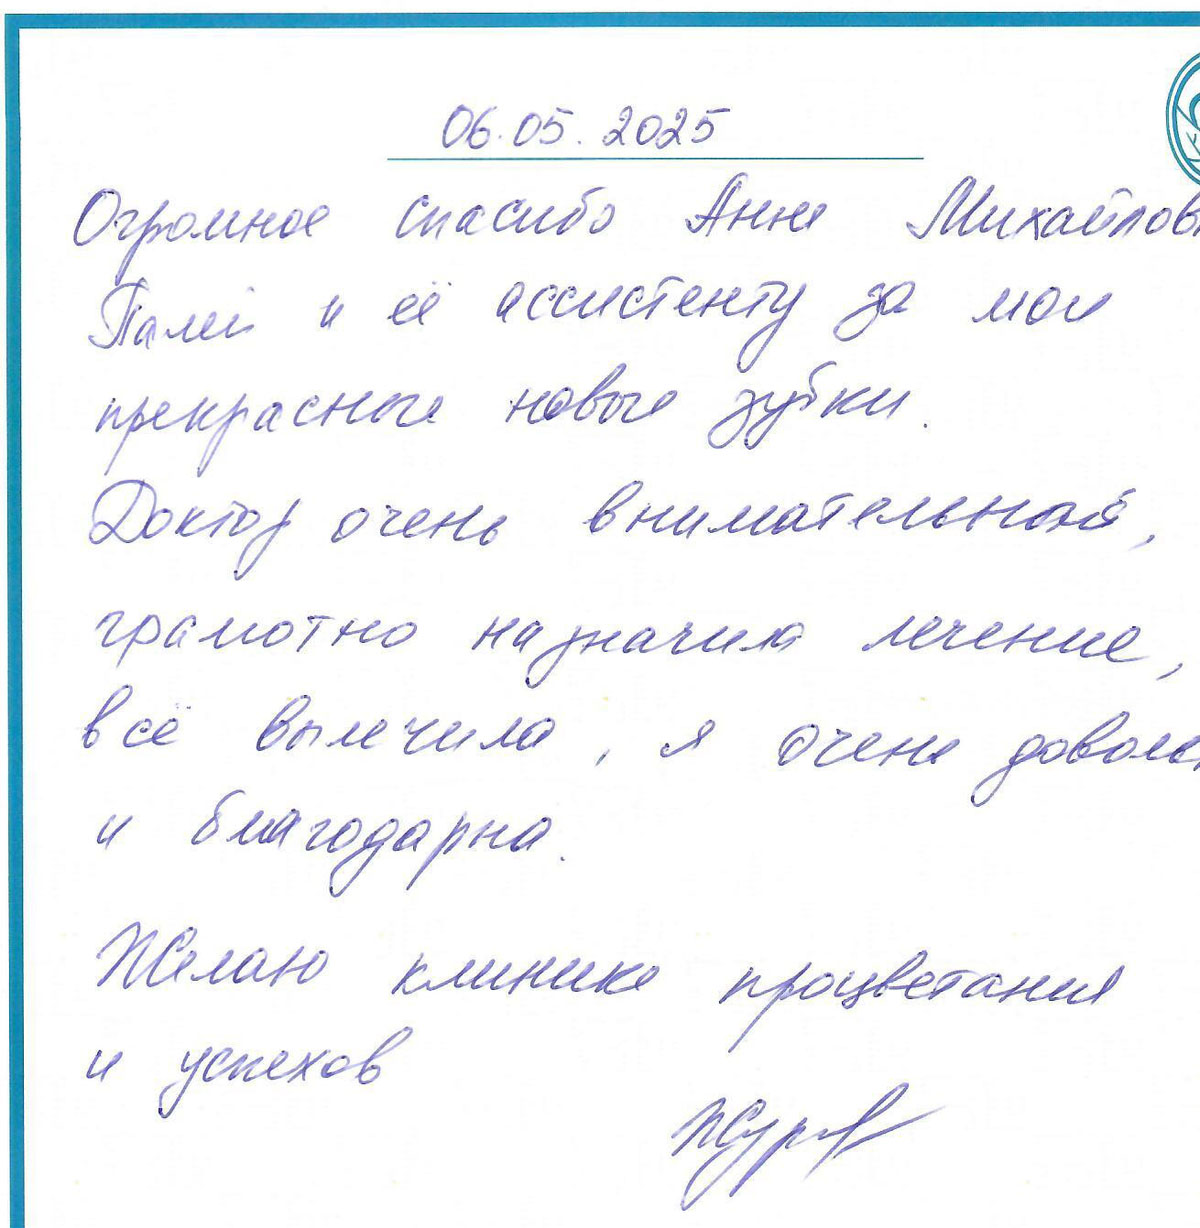 06.05.2025
Огромное спасибо Анне Михайловн
Палей и её ассистенту за мои
прекрасные новые зубки.
Доктор очень внимательный,
грамотно назначила лечение,
всё вылечила, я очень доволен
и благодарна.
Желаю клинике процветания
и успехов